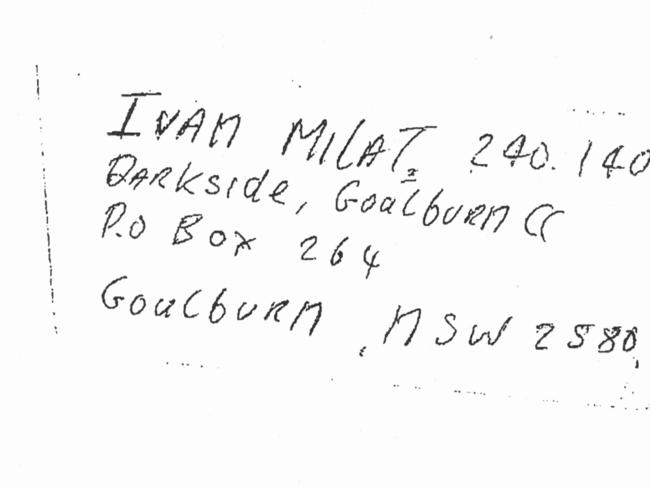 IVAN MILAT. 240.140
DARKSIDE, GOULBURN CC
P.O BOX 264
GOULBURN, NSW 2580,